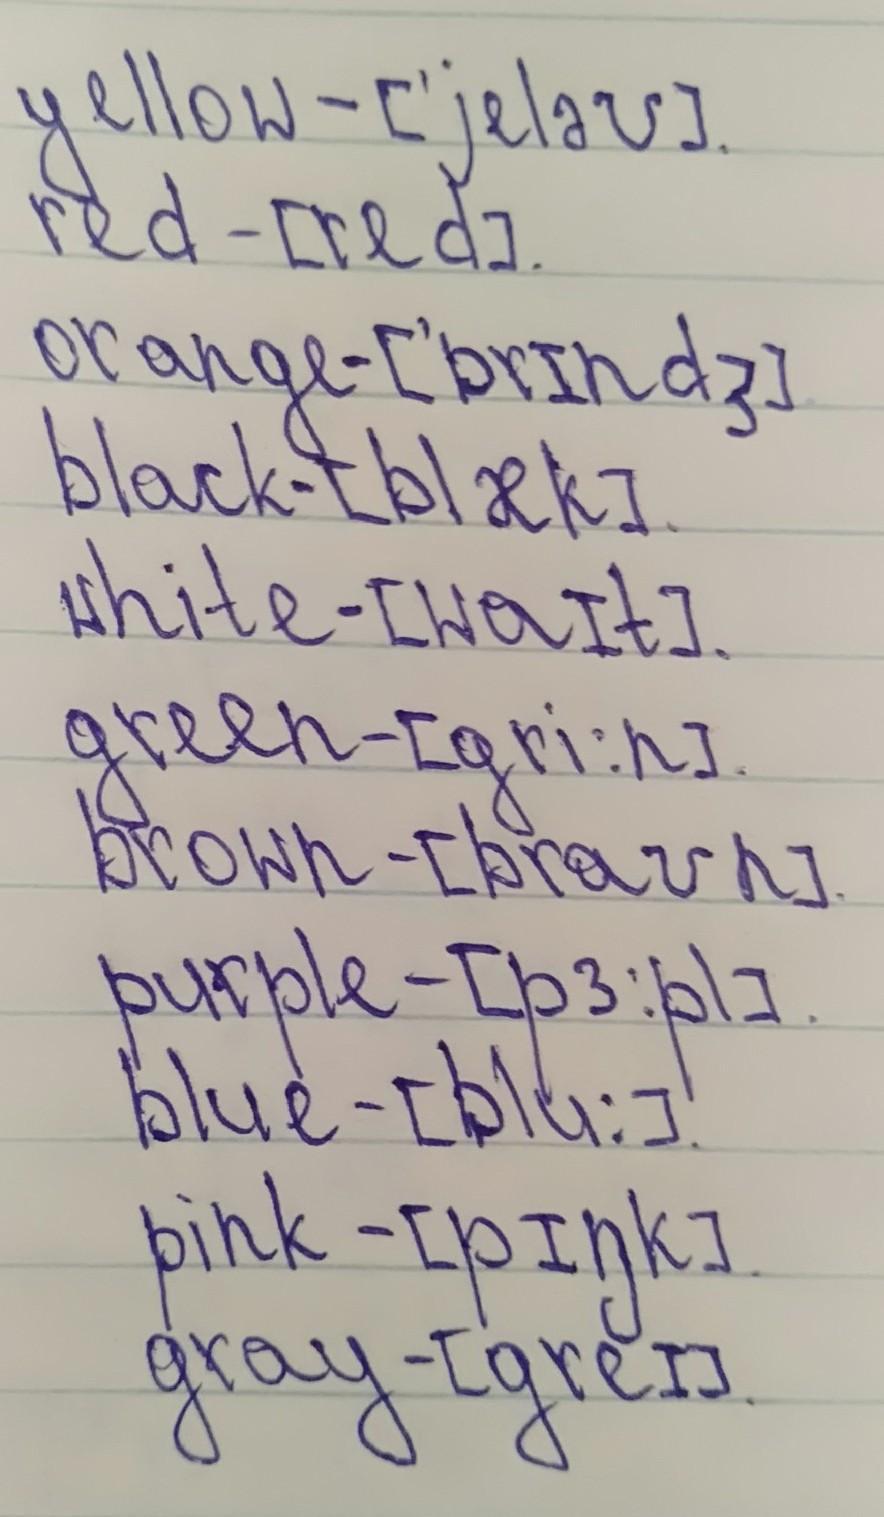 yellow - ['jeləʊ].
red - [red].
orange - ['brɪndʒ]
black - [blæk].
white - [waɪt].
green - [gri:n].
brown - [braʊn].
purple - [pɜ:pl].
blue - [blu:].
pink - [pɪŋk].
gray - [greɪ].